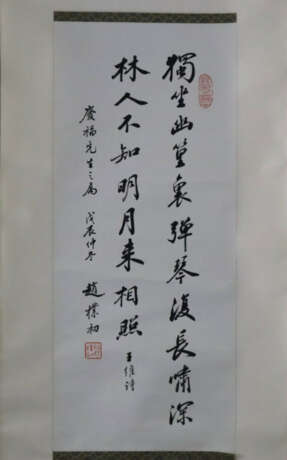 獨坐幽篁裏彈琴復長嘯深
林人不知明月来相照
王維詩
慶福先生之屬 戊辰仲冬
趙樸初